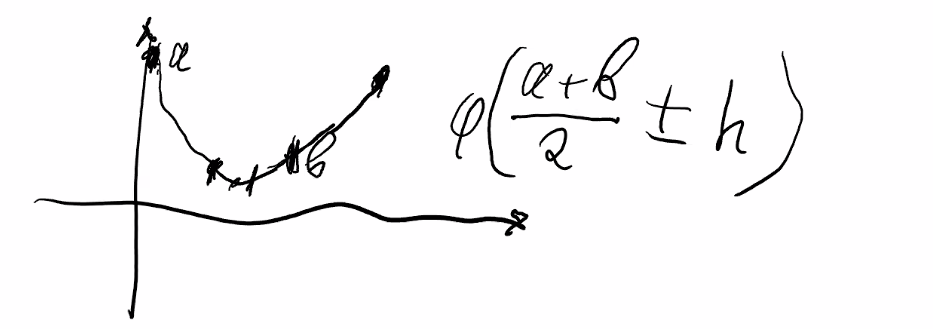 a
b
φ((a+b)/2 ± h)